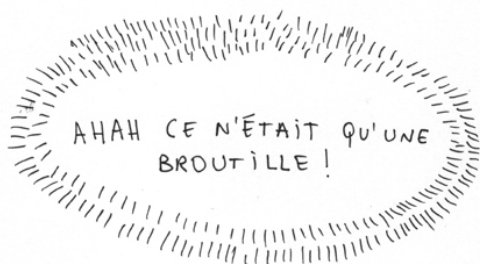 AHAH CE N'ÉTAIT QU'UNE
BROUTILLE !